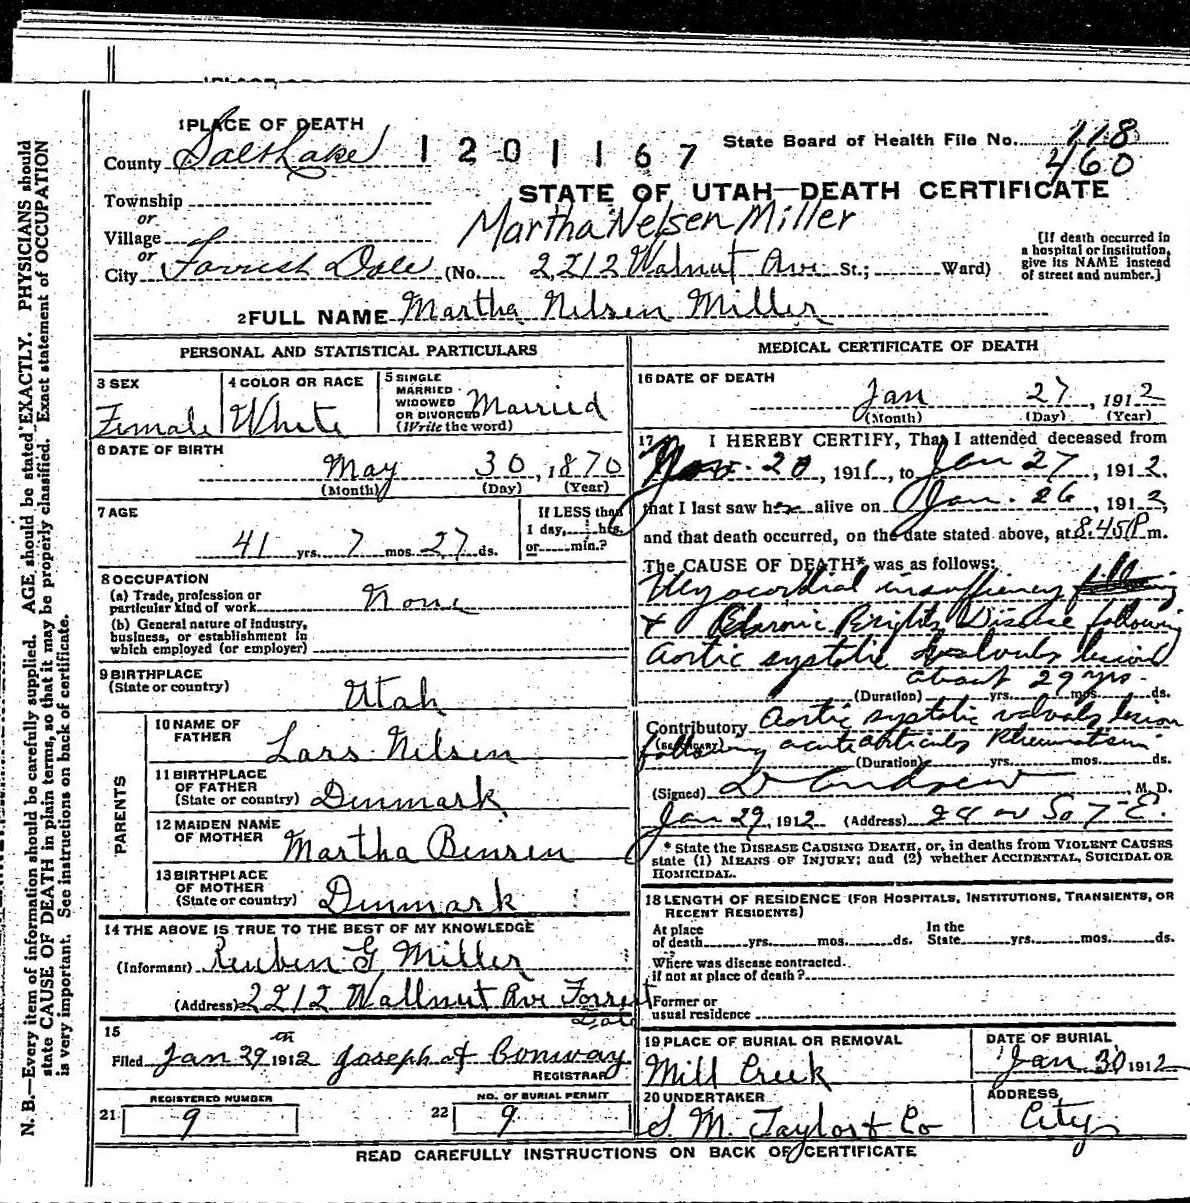 1 PLACE OF DEATH
County Salt Lake 1201167 State Board of Health File No. 118
460
Township
or
Village
or
City Forrest Dale (No. 2212 Walnut Ave St.; Ward)
STATE OF UTAH—DEATH CERTIFICATE
Martha Nelsen Miller
[If death occurred in
a hospital or institution,
give its NAME instead
of street and number.]
2 FULL NAME Martha Nelsen Miller
PERSONAL AND STATISTICAL PARTICULARS
3 SEX
Female
4 COLOR OR RACE
White
5 SINGLE
MARRIED
WIDOWED
OR DIVORCED
(Write the word)
Married
6 DATE OF BIRTH
May 30, 1870
(Month) (Day) (Year)
7 AGE
41 yrs. 7 mos. 27 ds.
If LESS than
1 day, hrs.
or min.?
8 OCCUPATION
(a) Trade, profession or
particular kind of work None
(b) General nature of industry,
business, or establishment in
which employed (or employer)
9 BIRTHPLACE
(State or country)
Utah
PARENTS
10 NAME OF
FATHER
Lars Nelsen
11 BIRTHPLACE
OF FATHER
(State or country) Denmark
12 MAIDEN NAME
OF MOTHER
Martha Bensen
13 BIRTHPLACE
OF MOTHER
(State or country) Denmark
14 THE ABOVE IS TRUE TO THE BEST OF MY KNOWLEDGE
(Informant) Reuben G Miller
(Address) 2212 Wallnut Ave Forrest
Dale
15
Filed Jan 29th 1912 Joseph Conway
REGISTRAR
REGISTERED NUMBER
21 9
NO. OF BURIAL PERMIT
22 9
MEDICAL CERTIFICATE OF DEATH
16 DATE OF DEATH
Jan 27, 1912
(Month) (Day) (Year)
17 I HEREBY CERTIFY, That I attended deceased from
Nov. 20, 1911, to Jan 27, 1912,
that I last saw her alive on Jan. 26, 1912,
and that death occurred, on the date stated above, at 8.45 P m.
The CAUSE OF DEATH* was as follows:
Myocordial insufficiency
+ Chronic Brights Disease following
Aortic systolic lesion
about 29 yrs.
(Duration) yrs. mos. ds.
Contributory Aortic systolic valvular lesion
(SECONDARY) following acute articular Rheumatism
(Duration) yrs. mos. ds.
(Signed) Andrew M. D.
Jan 29, 1912 (Address) So 7 E.
* State the DISEASE CAUSING DEATH, or, in deaths from VIOLENT CAUSES
state (1) MEANS OF INJURY; and (2) whether ACCIDENTAL, SUICIDAL OR
HOMICIDAL.
18 LENGTH OF RESIDENCE (FOR HOSPITALS, INSTITUTIONS, TRANSIENTS, OR
RECENT RESIDENTS)
At place
of death yrs. mos. ds.
In the
State yrs. mos. ds.
Where was disease contracted.
if not at place of death?
Former or
usual residence
19 PLACE OF BURIAL OR REMOVAL
Mill Creek
DATE OF BURIAL
Jan 30 1912
20 UNDERTAKER
S. M. Taylor & Co
ADDRESS
City
READ CAREFULLY INSTRUCTIONS ON BACK OF CERTIFICATE
N. B.—Every item of information should be carefully supplied. AGE should be stated EXACTLY. PHYSICIANS should
state CAUSE OF DEATH in plain terms, so that it may be properly classified. Exact statement of OCCUPATION
is very important. See instructions on back of certificate.